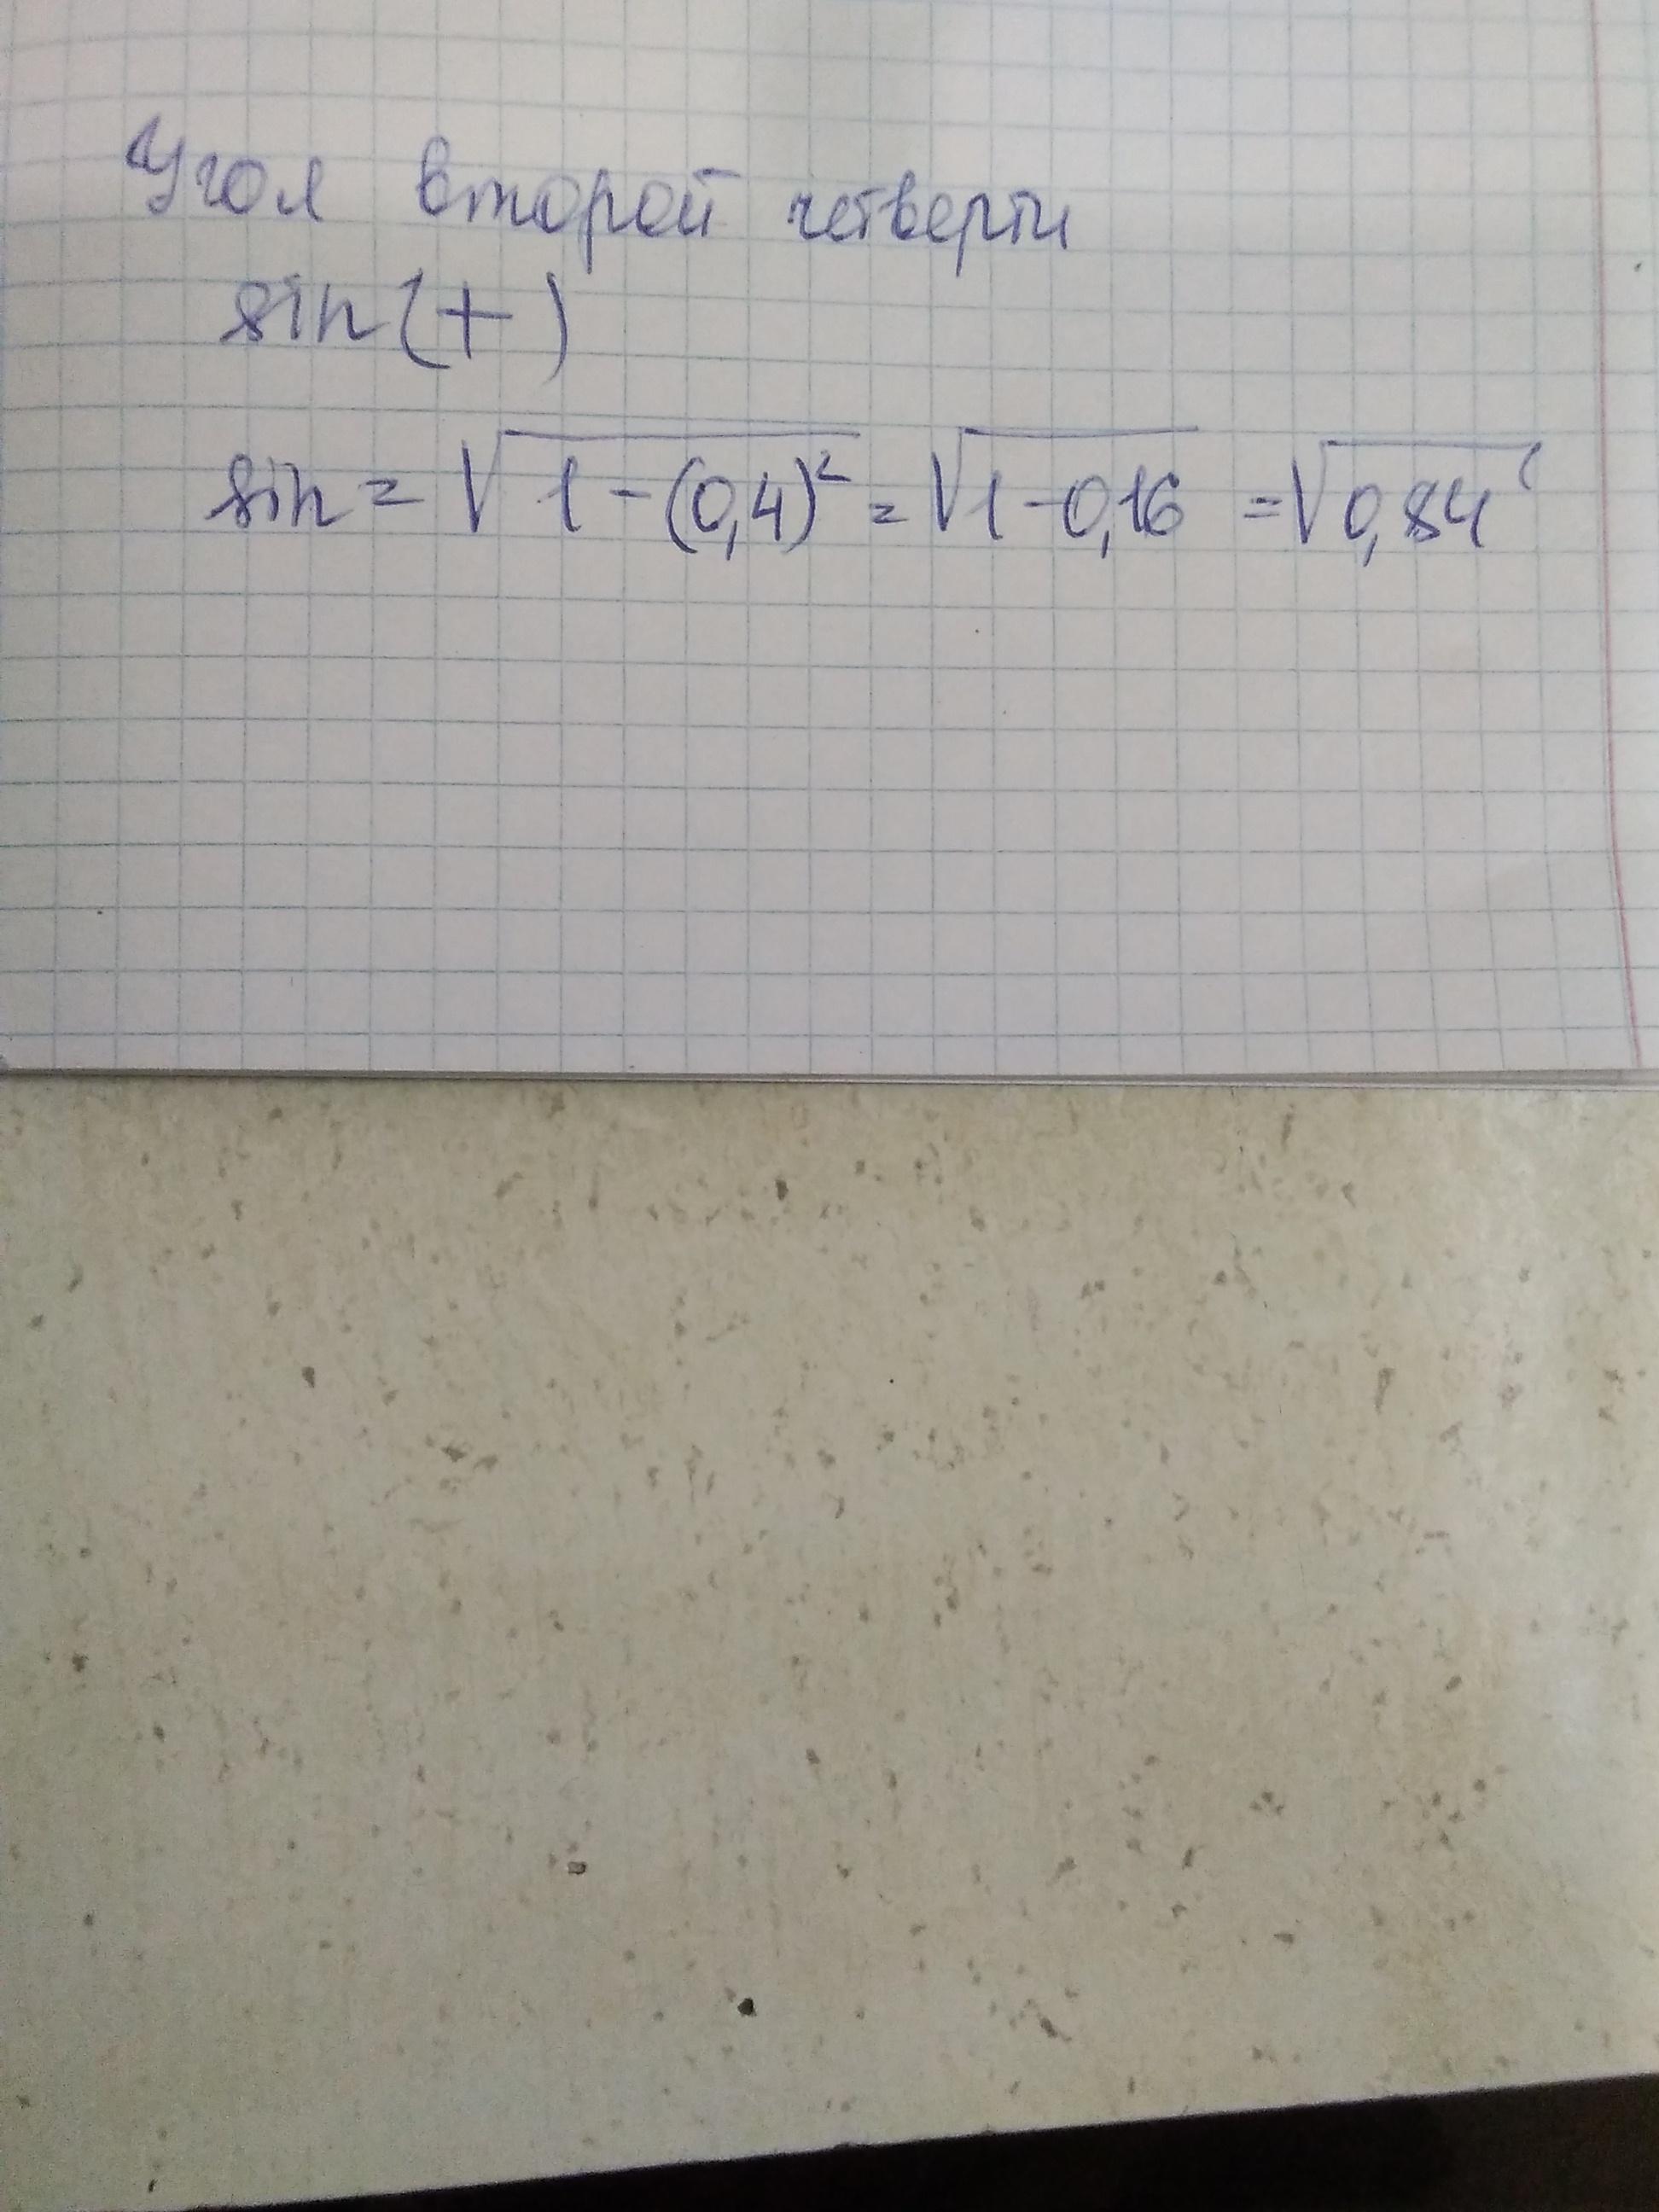 Угол второй четверти
sin(+)
sin = √1-(0,4)² = √1-0,16 = √0,84